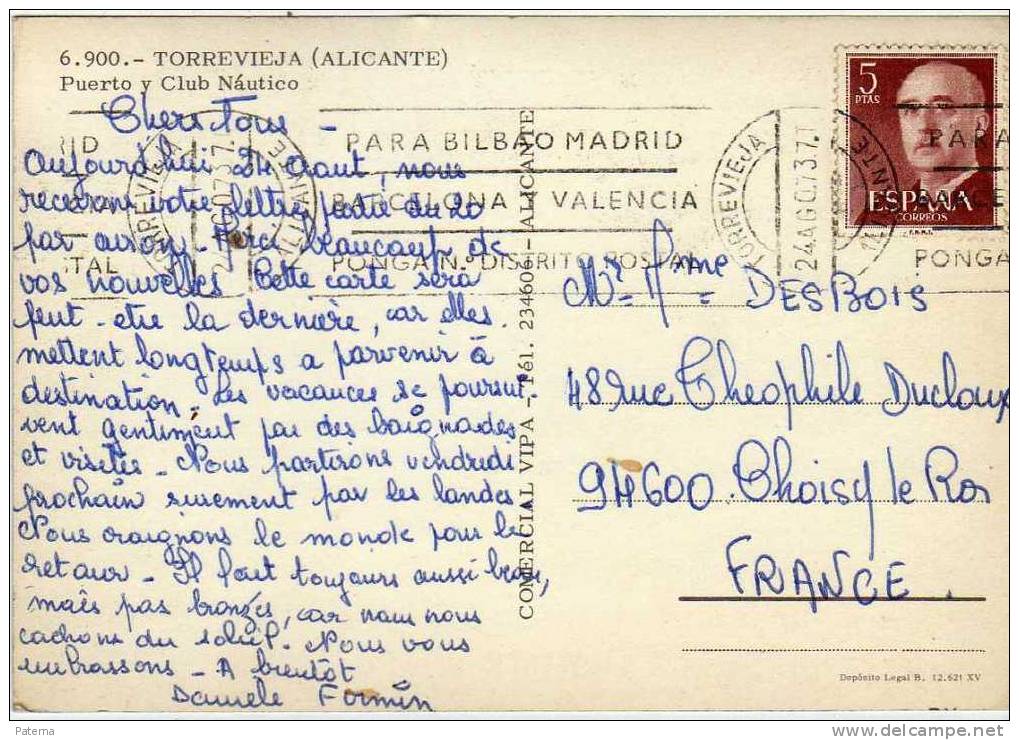 6.900.- TORREVIEJA (ALICANTE)
Puerto y Club Náutico
Chers Tous -
Aujourd'hui 24 août, nous
recevons votre lettre, postée du 20
par avion. Merci beaucoup de
vos nouvelles. Cette carte sera
peut-être la dernière, car elles
mettent longtemps a parvenir à
destination. Les vacances se poursui-
vent gentiment par des baignades
et visites - Nous partirons vendredi
prochain surement par les landes
Nous craignons le monde pour le
retour - Il fait toujours aussi beau,
mais pas bronzés, car nous nous
cachons du soleil. Nous vous
embrassons - A bientôt
Danièle Firmin
COMERCIAL VIPA - Tél. 234606 - ALICANTE
RID
ITAL
TORREVIEJA
24AGO73.7.T
PARA BILBAO MADRID
BARCELONA Y VALENCIA
PONGA N.º DISTRITO POSTAL
TORREVIEJA
24AGO73.7.T
PARA
PONGA
5
PTAS
ESPAÑA
CORREOS
Mr & Mme DESBOIS
48 rue Théophile Duclaux
94600. Choisy le Roi
FRANCE.
Depósito Legal B. 12.621 XV
Paterna
delcampe.net